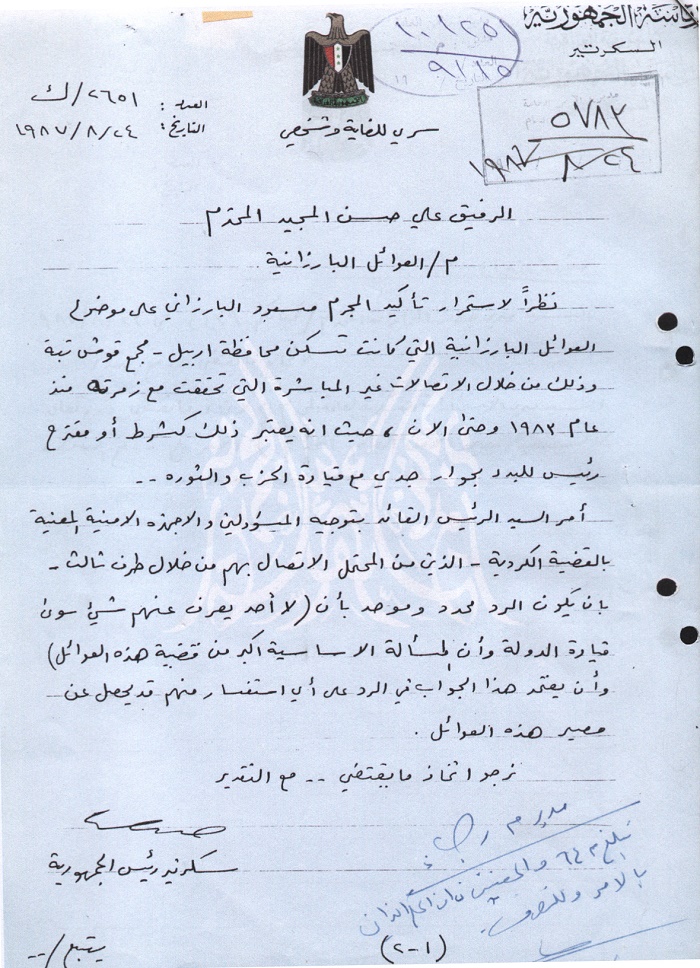 رئاسة الجمهورية
السكرتير
١٠١٢٥١
٩/١٥
العدد : ٢٦٥١/ك
التاريخ : ١٩٨٧/٨/٢٤
سري للغاية وشخصي
٥٧٨٣
٨/٢٤
الرفيق علي حسن المجيد المحترم
م/العوائل البارزانية
نظراً لاستمرار تأكيد المجرم مسعود البارزاني على موضوع
العوائل البارزانية التي كانت تسكن محافظة اربيل - مجمع قوش تبة
وذلك من خلال الاتصالات غير المباشرة التي تحققت مع زمرته منذ
عام ١٩٨٣ وحتى الان ، حيث انه يعتبر ذلك كشرط أو مقترح
رئيس للبدء بحوار جدي مع قيادة الحزب والثوره --
أمر السيد الرئيس القائد بتوجيه المسؤولين والاجهزه الامنية المعنية
بالقضية الكردية - الذين من المحتمل الاتصال بهم من خلال طرف ثالث -
بان يكون الرد محدد وموحد بأن (لا أحد يعرف عنهم شيئ سوى
قيادة الدولة وأن المسألة الاساسية اكبر من قضية هذه العوائل)
وأن يعتمد هذا الجواب في الرد على أي استفسار منهم قد يحصل عن
مصير هذه العوائل .
نرجو اتخاذ مايقتضي -- مع التقدير
سكرتير رئيس الجمهورية
مدير م
بالامر
(١-٢)
يتبع/--